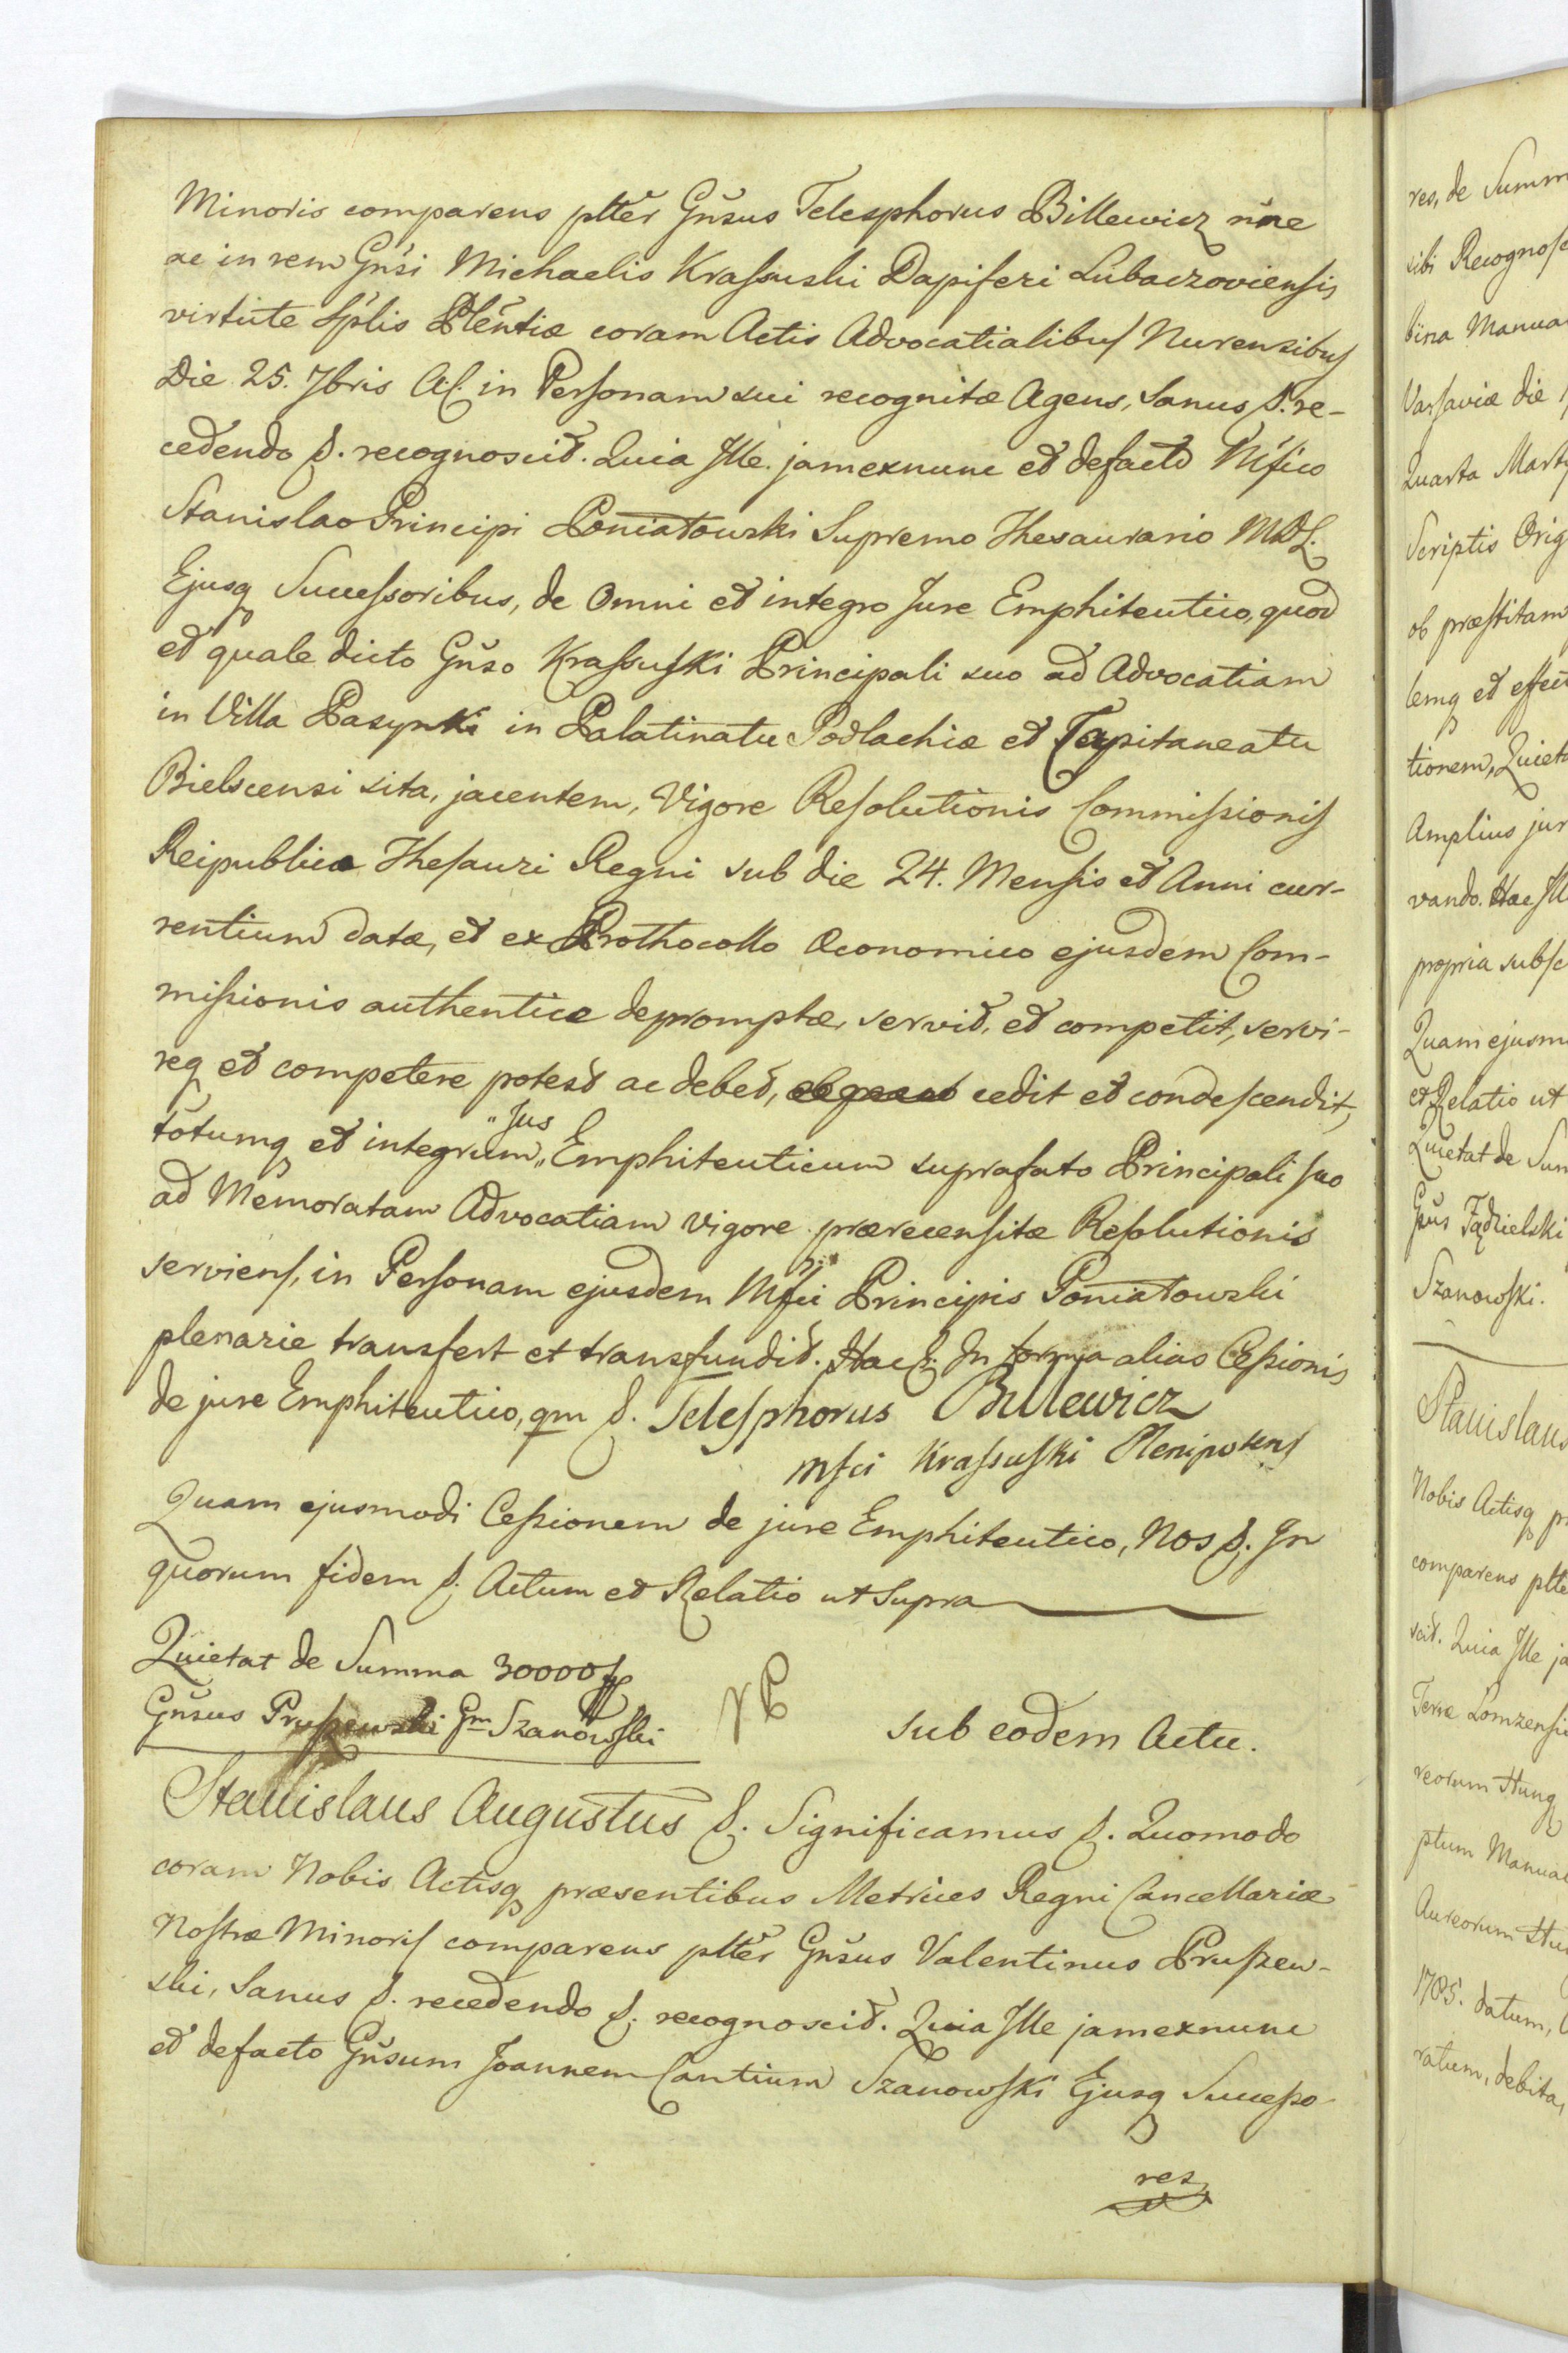 Minoris comparens ptter Gnsus Telesphorus Billewicz nne
ac in rem Gnsi Michaelis Krassuski Dapiferi Lubaczoviensis
virtute Splis Plentiæ coram Actis Advocatialibus Nurensibus
Die 25. 7bris A.C. in Personam sui recognitæ Agens, Sanus &. re-
cedendo &. recognoscit. Quia Ille jamexnunc et defacto Mfico
Stanislao Principi Poniatowski Supremo Thesaurario MDL.
Ejusq Successoribus, de Omni et integro Jure Emphiteutico, quod
et quale dicto Gnso Krassuski Principali suo ad Advocatiam
in Villa Pasynki in Palatinatu Podlachiæ et Capitaneatu
Bielscensi sita, jacentem, Vigore Resolutionis Commissionis
Reipublicæ Thesauri Regni sub die 24. Mensis et Anni cur-
rentium datæ, et ex Prothocollo Œconomico ejusdem Com-
missionis authentice depromptæ, servit, et competit, servi-
req et competere potest ac debet, cedit et condescendit,
totumq et integrum "Jus" Emphiteuticum suprafato Principali suo
ad Memoratam Advocatiam vigore prærecensitæ Resolutionis
serviens, in Personam ejusdem Mfci Principis Poniatowski
plenarie transfert et transfundit. Hac &. In forma alias Cessionis
de jure Emphiteutico, qm &. Telesphorus Billewicz
Mfci Krassuski Plenipotens
Quam ejusmodi Cessionem de jure Emphiteutico, Nos &. In
quorum fidem &. Actum et Relatio ut Supra
Quietat de Summa 30000 f
Gnsus Pruszewski Gm Szanowski
sub eodem Actu.
Stanislaus Augustus &. Significamus &. Quomodo
coram Nobis Actisq præsentibus Metrices Regni Cancellariæ
Nostræ Minoris comparens ptter Gnsus Valentinus Pruszew-
ski, Sanus &. recedendo &. recognoscit. Quia Ille jamexnunc
et defacto Gnsum Joannem Cantium Szanowski Ejusq Successo-
res
res, de Summ
sibi Recognosc
bina Manua
Varsaviæ die
Quarta Marty
Scriptis Orig
ob præstitam
lemq et effect
tionem, Quieta
Amplius jur
vando. Hac Ill
propria subsc
Quam ejusm
et Relatio ut
Quietat de Sum
Gsus Fądzielski
Szanowski.
Stanislaus
Nobis Actisq pr
comparens ptte
scit. Quia Ille ja
Terræ Lomzensis
reorum Hung
ptum Manual
Aureorum Hu
1785. datum,
ratum, debita